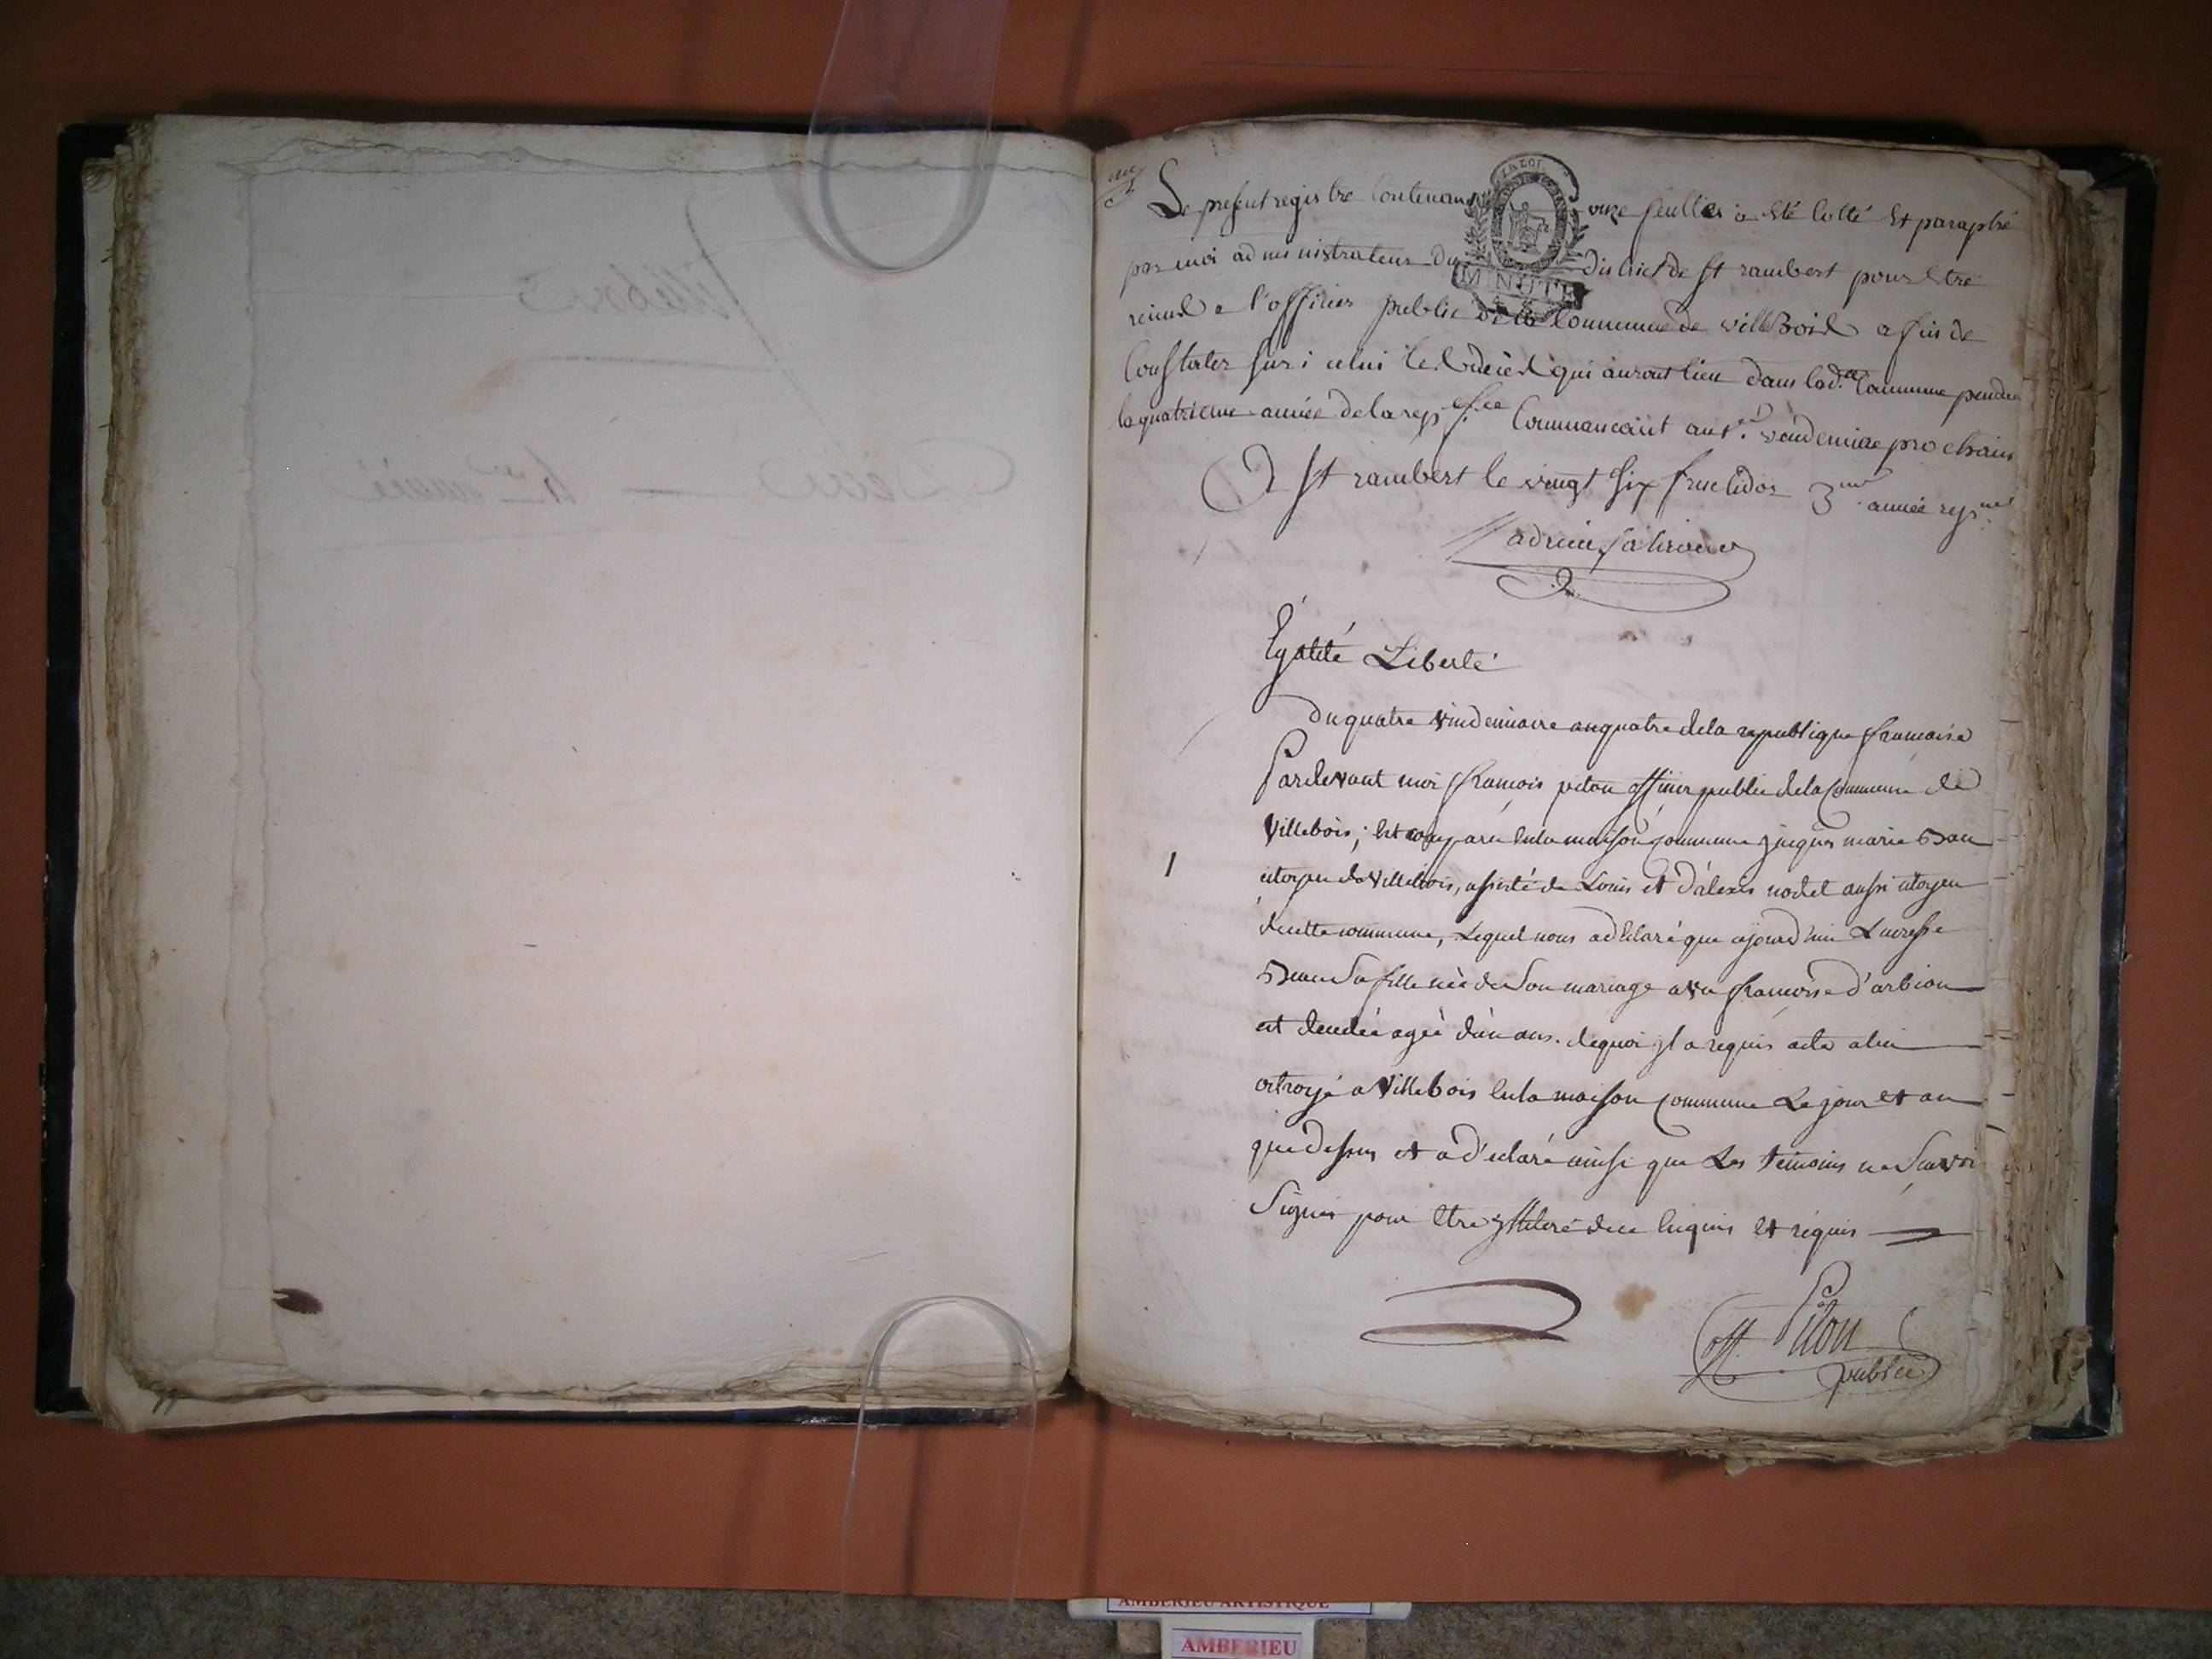 Le present registre Contenant onze feuilles a été Cotté Et paraphé
par moi administrateur du district de st rambert pour Etre
remis a l'officier public de la Commune de villebois afin de
Constater sur i celui les décès qui auront lieu dans lad.e Commune pendt
la quatrieme année de la rep. f.se Commancant au 1.er vendemiaire prochain
A st rambert le vingt six fructidor 3me année repne
LA LOI
MINUTE
Egalité Liberté
du quatre vindemiaire an quatre de la republique francoise
Pardevant moi francois piton officier public de la Commune de
Villebois; Est comparu En la maison Commune jacques marie
citoyen de Villebois, assisté de Louis et d'alexis nodet aussi citoyen
de cette commune, Lequel nous a déclaré que ajourd'hui
sa fille née de Son mariage avec francoise d'arbion
est decedée agée d'un ans. de quoi yl a requis acte a lui
octroyé a Villebois En la maison Commune Le jour et an
que dessus et a déclaré ainsi que Les témoins ne Scavoir
Signer pour Etre de ce Enquis Et requis
1
Piton
off. public
Villebois
Décès 4me année
AMBERIEU ARTISTIQUE
AMBERIEU